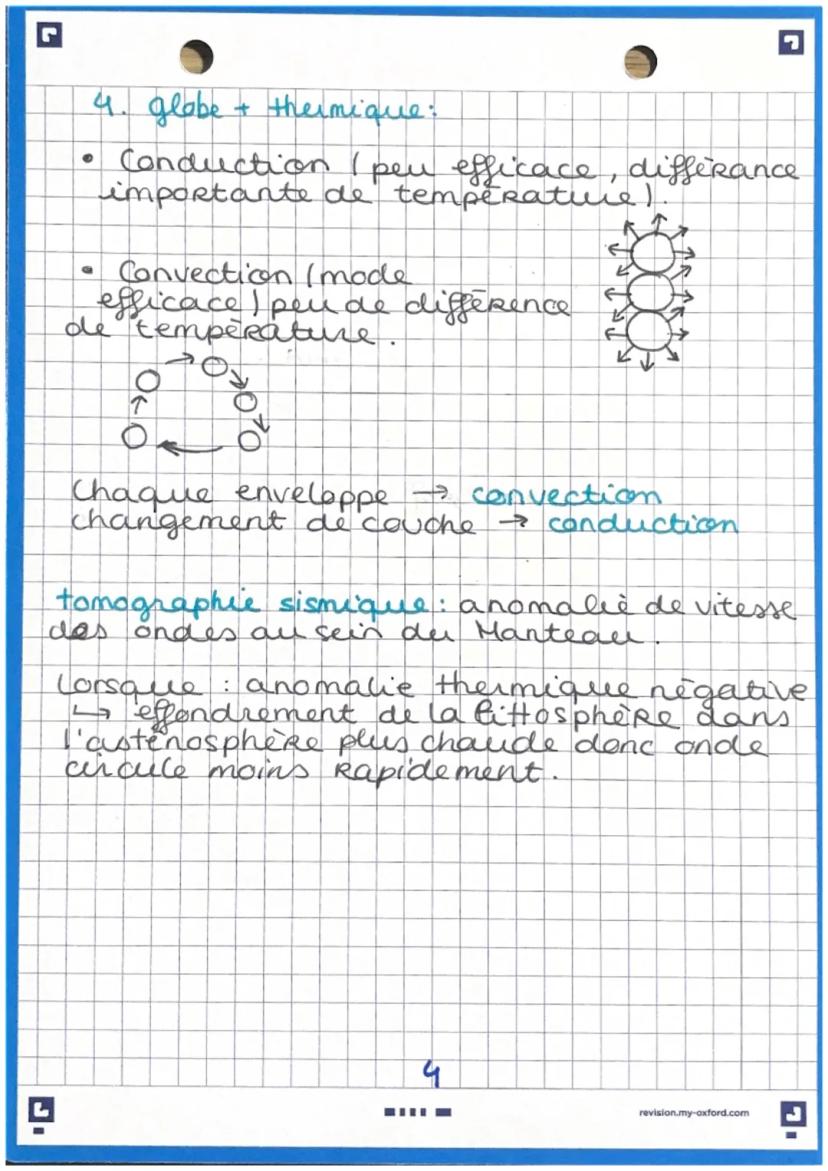 4. globe + thermique:
• Conduction (peu efficace, différance
importante de température).
• Convection (mode
efficace) peu de différence
de température.
Chaque enveloppe → convection
changement de couche → conduction
tomographie sismique: anomalie de vitesse
des ondes au sein du Manteau.
Lorsque : anomalie thermique négative
↳ effondrement de la litthosphère dans
l'asténosphère plus chaude donc onde
circule moins rapidement.
4
revision.my-oxford.com